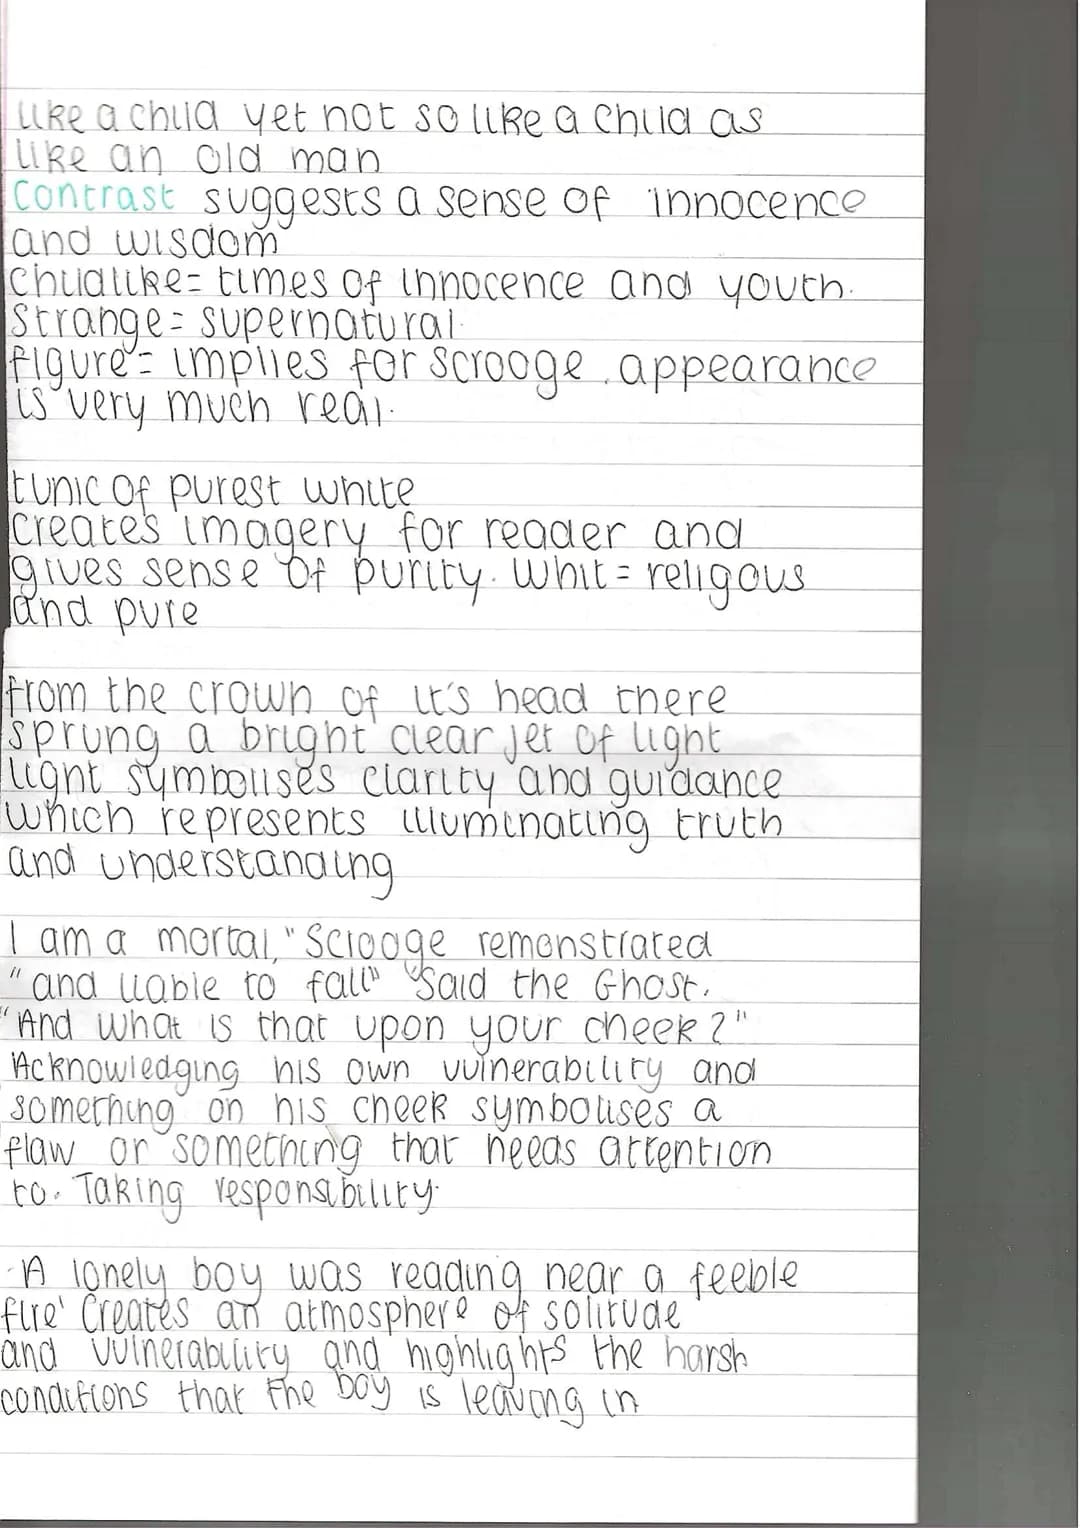 like a child yet not so like a child as
like an old man
Contrast suggests a sense of innocence
and wisdom
childlike = times of innocence and youth.
Strange = supernatural.
figure = implies for scrooge . appearance
is very much real.
tunic of purest white
creates imagery for reader and
gives sense of purity. Whit = religous
and pure
from the crown of it's head there
sprung a bright clear jet of light
light symbolises clarity and guidance
which represents illuminating truth
and understanding
I am a mortal," Scrooge remonstrated
" and liable to fall" "Said the Ghost.
"And what is that upon your cheek?"
Acknowledging his own vulnerability and
something on his cheek symbolises a
flaw or something that needs attention
to. Taking responsibility.
-A lonely boy was reading near a feeble
fire' Creates an atmosphere of solitude
and vulnerability and highlights the harsh
conditions that the boy is leaving in